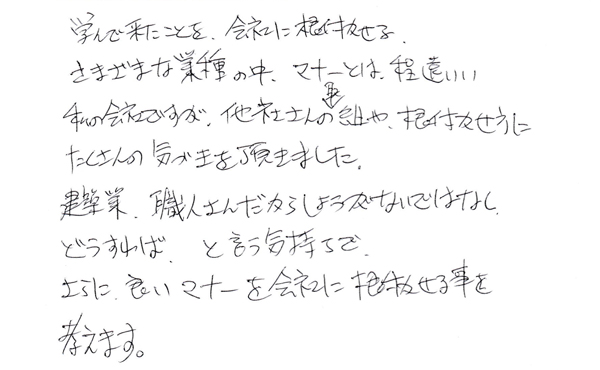 学んで来たことを、会社に根付かせる、
さまざまな業種の中、マナーとは、程遠いい
私の会社ですが、他社さんの事組や、根付かせ方に
たくさんの気づきを頂きました。
建築業、職人さんだからしょうがないではなし
どうすれば、と言う気持ちで、
さらに、良いマナーを会社に根付かせる事を
考えます。